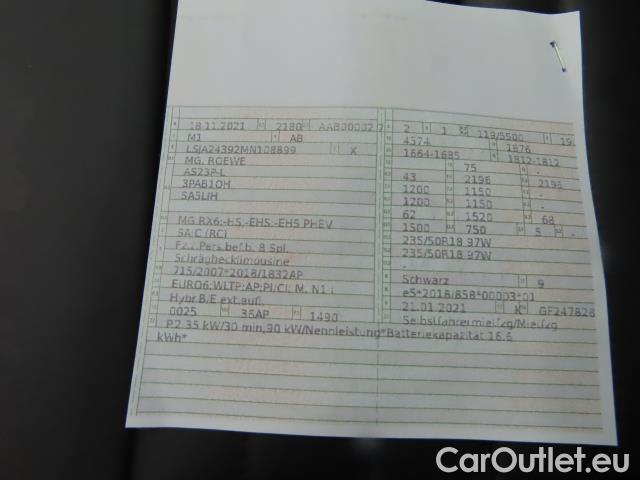 18.11.2021 2180 AAB00002 7
M1 AB
LSJA24392MN108899 X
MG. ROEWE
AS23P-L
3PAB1OH
SA5LIH
MG RX6;-HS,-EHS,-EHS PHEV
SAIC (RC)
Fz.z.Pers.bef.b. 8 Spl.
Schräghecklimousine
715/2007*2018/1832AP
EURO6;WLTP;AP;PI/CI; M, N1 I
Hybr.B/E ext.aufl.
0025 36AP 1490
2 1 119/5500 19.
4574 1876
1664-1685 1812-1812
75 -
43 2196 2196
1200 1150 -
1200 1150 -
62 1520 68
1500 750 5 -
235/50R18 97W
235/50R18 97W
-
Schwarz 9
e5*2018/858*00003*01
21.01.2021 K GF247828
Selbstfahrermietfzg/Mietfzg
P.2.35 kW/30 min,90 kW/Nennleistung*Batteriekapazität 16.6
kWh*
CarOutlet.eu